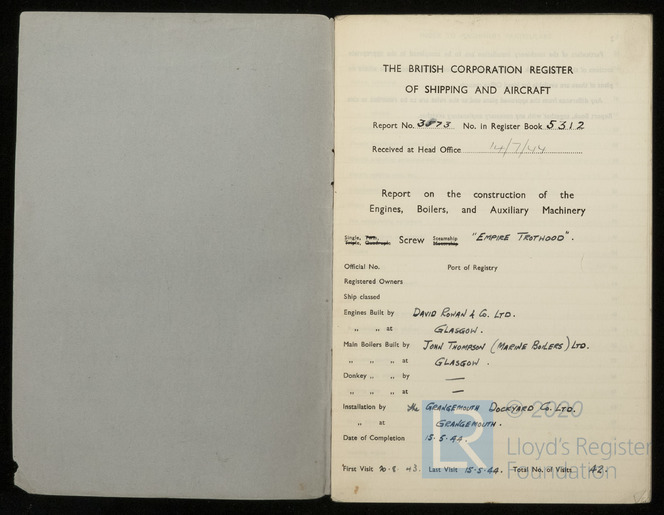 THE BRITISH CORPORATION REGISTER
OF SHIPPING AND AIRCRAFT
Report No. 3873 No. in Register Book 5312
Received at Head Office 14/7/44
Report on the construction of the
Engines, Boilers, and Auxiliary Machinery
Single, Twin, Triple, Quadruple Screw Steamship Motorship "EMPIRE TROTHOOD".
Official No. Port of Registry
Registered Owners
Ship classed
Engines Built by DAVID ROWAN & Co. LTD.
" " at GLASGOW.
Main Boilers Built by JOHN THOMPSON (MARINE BOILERS) LTD.
" " " at GLASGOW.
Donkey " " by —
" " " at —
Installation by the GRANGEMOUTH DOCKYARD Co. LTD.
" at GRANGEMOUTH.
Date of Completion 15.5.44.
First Visit 20.8.43. Last Visit 15.5.44. Total No. of Visits 42.
LR
© 2020
Lloyd's Register
Foundation